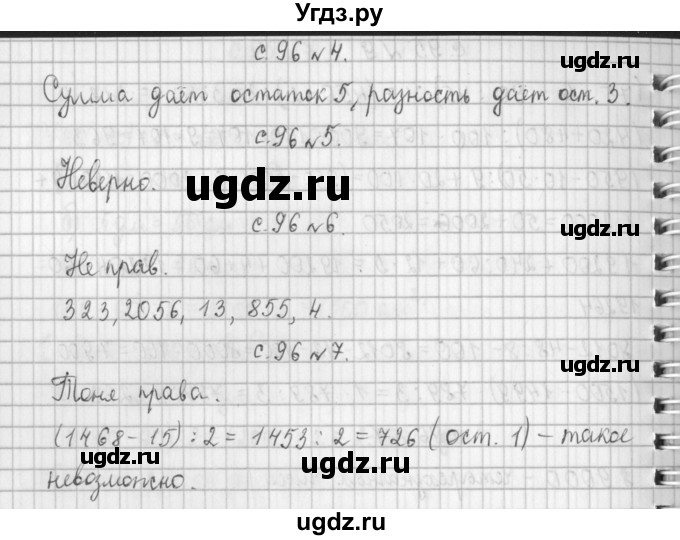 Угдз.ру
с. 96 №4.
ugdz.ru
ugdz.ru
Сумма даёт остаток 5, разность даёт ост. 3.
с. 96 №5.
Неверно.
ugdz.ru
ugdz.ru
с. 96 №6.
Не прав.
ugdz.ru
323, 2056, 13, 855, 4.
с. 96 №7.
ugdz.ru
Тоня права.
(1468-15):2=1453:2=726 (ост. 1) – такое
ugdz.ru
ugdz.ru
невозможно.
ugdz.ru